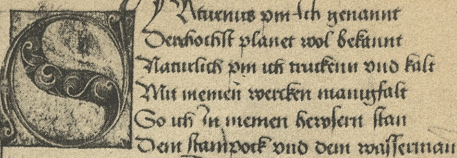 SAturnus pin ich genannt
Derhochst planet wol bekannt
Naturlich pin ich truckenn vnd kalt
Mit meinen wercken manigfalt
So ich in meinen hewsern stan
Dem stainpock vnd dem wasserman